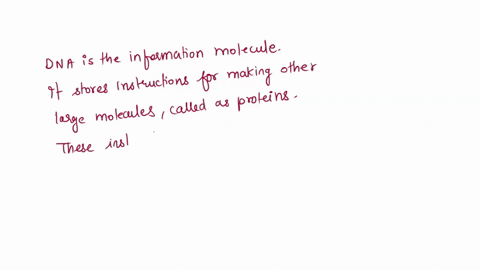 DNA is the information molecule.
It stores instructions for making other
large molecules, called as proteins.
These inst